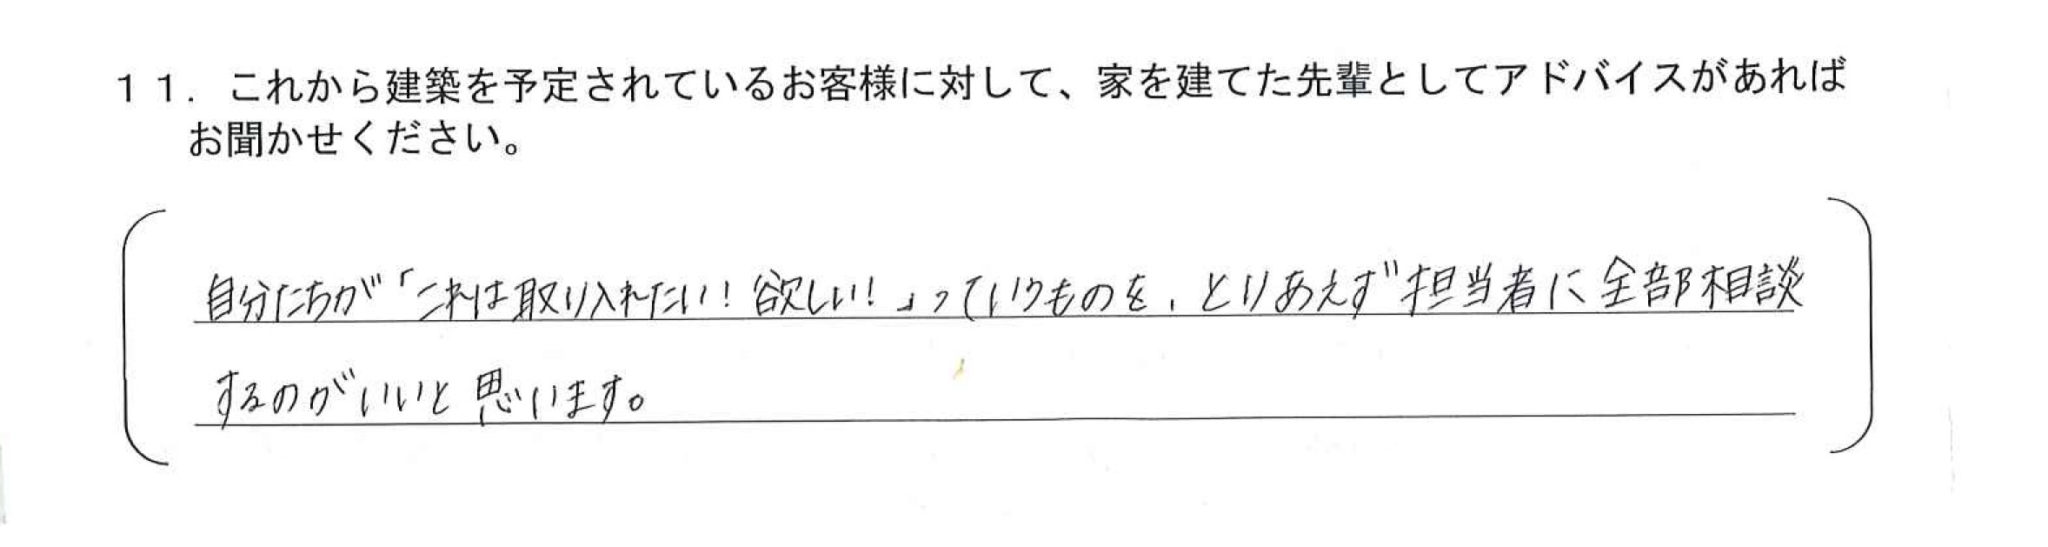 １１．これから建築を予定されているお客様に対して、家を建てた先輩としてアドバイスがあれば
お聞かせください。
自分たちが「これは取り入れたい！欲しい！」っていうものを、とりあえず担当者に全部相談
するのがいいと思います。